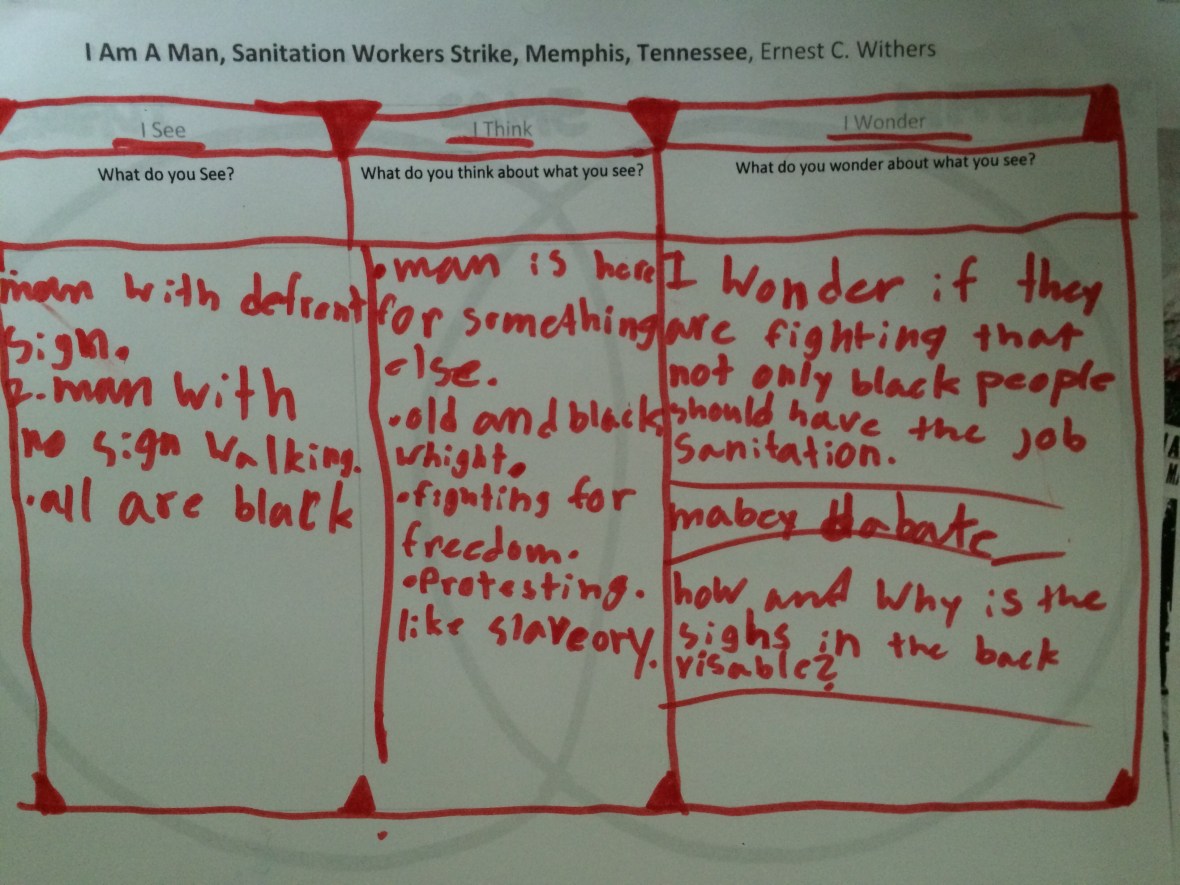 I Am A Man, Sanitation Workers Strike, Memphis, Tennessee, Ernest C. Withers
I See
What do you See?
man with defront
sign.
2. man with
no sign walking.
• all are black
I Think
What do you think about what you see?
• man is here
for something
else.
• old and black
whight.
• fighting for
freedom.
• Protesting.
like slaveory.
I Wonder
What do you wonder about what you see?
I Wonder if they
are fighting that
not only black people
should have the job
sanitation.
mabey
how and Why is the
sighs in the back
visable?